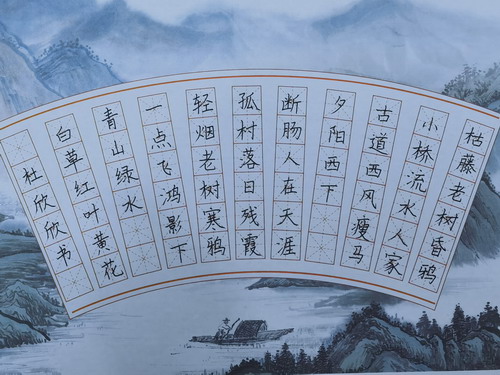 枯藤老树昏鸦
小桥流水人家
古道西风瘦马
夕阳西下
断肠人在天涯
孤村落日残霞
轻烟老树寒鸦
一点飞鸿影下
青山绿水
白草红叶黄花
杜欣欣书